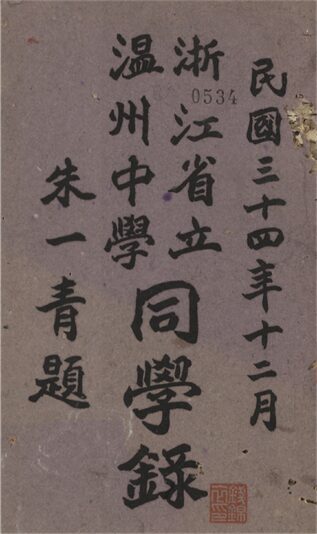 民國三十四年十二月
浙江省立
温州中學
同學錄
朱一青題
0534